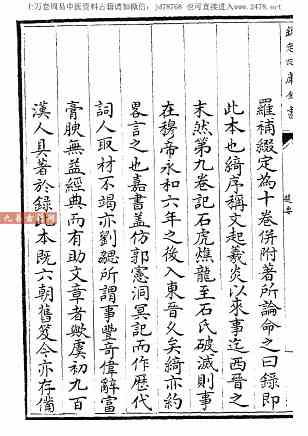 上万套周易中医资料古籍请加微信：jd78768 也可直接进入www.2478.net
欽定四庫全書
提要
羅補綴定為十卷併附著所論命之曰錄即
此本也綺序稱文起羲炎以來事迄西晋之
末然第九卷記石虎燋龍至石氏破滅則事
在穆帝永和六年之後入東晉久矣綺亦約
畧言之也嘉書蓋仿郭憲洞冥記而作歴代
詞人取材不竭亦劉勰所謂事豐奇偉辭富
膏腴無益經典而有助文章者歟虞初九百
漢人具著於錄此本既六朝舊笈今亦存備